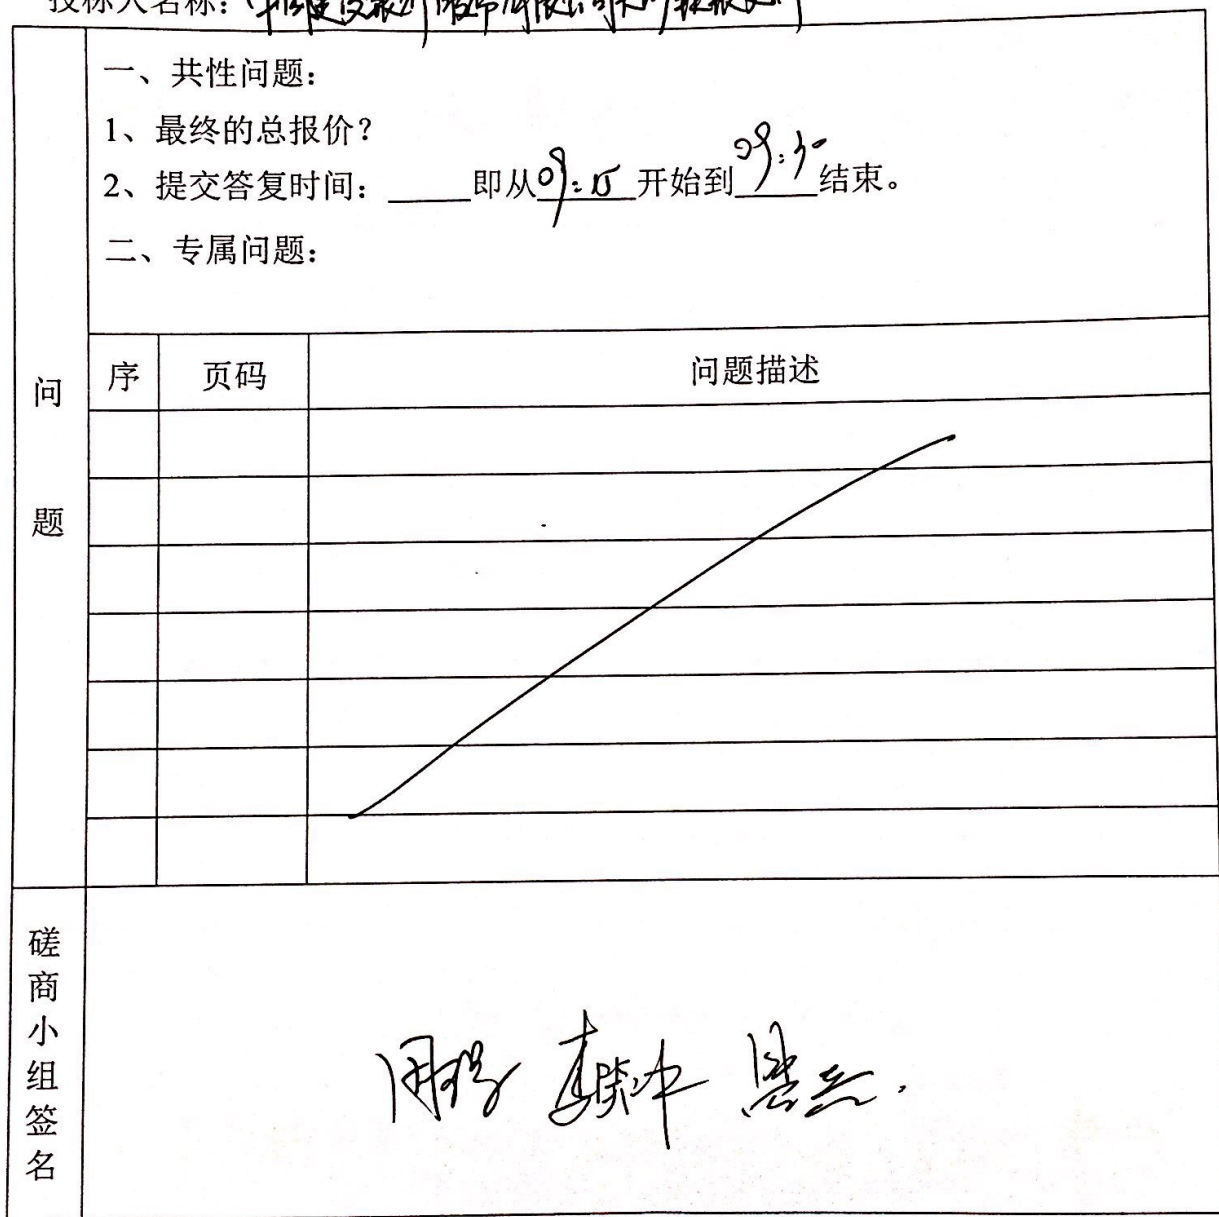 投标人名称：
一、共性问题：
1、最终的总报价？
2、提交答复时间：_____即从09:15开始到09:30结束。
二、专属问题：
问题
序 页码 问题描述
磋商小组签名